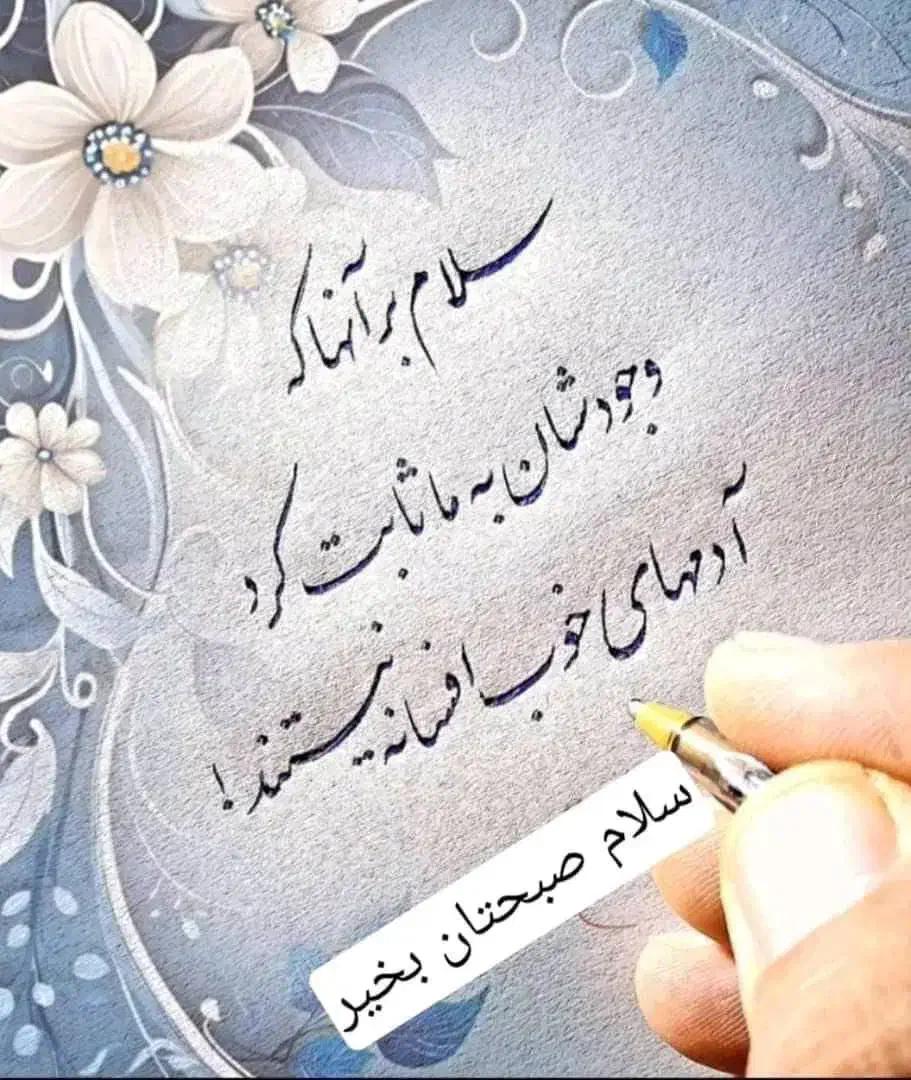 سلام بر آنها که
وجودشان به ما ثابت کرد
آدمهای خوب افسانه نیستند!
سلام صبحتان بخیر